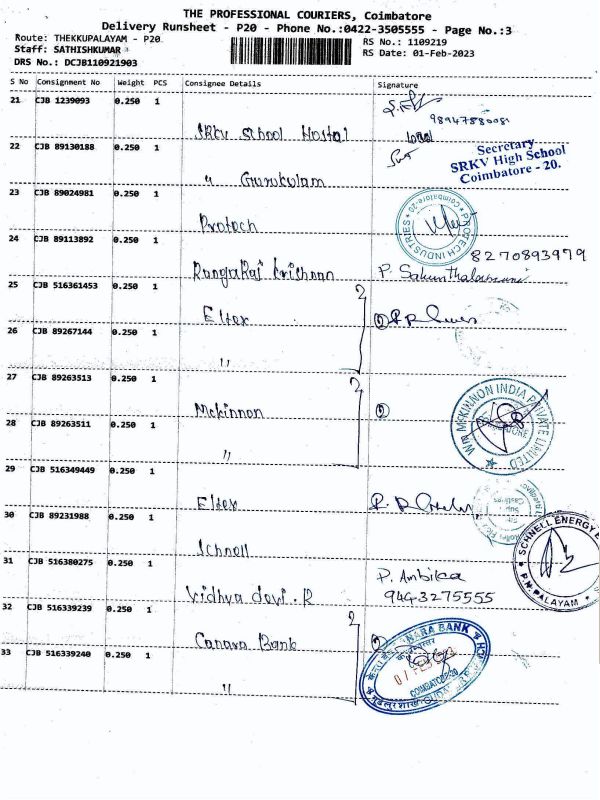 THE PROFESSIONAL COURIERS, Coimbatore
Delivery Runsheet - P20 - Phone No.:0422-3505555 - Page No.:3
Route: THEKKUPALAYAM - P20
RS No.: 1109219
Staff: SATHISHKUMAR
RS Date: 01-Feb-2023
DRS No.: DCJB110921903
S No Consignment No Weight PCS Consignee Details Signature
21 CJB 1239093 0.250 1
SRKV School Hostel
9894788008
22 CJB 89130188 0.250 1
Secretary
SRKV High School
Coimbatore - 20.
" Gurukulam
23 CJB 89024981 0.250 1
Protech
PROTECH INDUSTRIES
Coimbatore-20
24 CJB 89113892 0.250 1
8270893979
Rangaraj Krishnan
25 CJB 516361453 0.250 1
Eltex
26 CJB 89267144 0.250 1
"
27 CJB 89263513 0.250 1
Mckinnon
2
W/R MCKINNON INDIA PRIVATE LIMITED
28 CJB 89263511 0.250 1
"
29 CJB 516349449 0.250 1
Eltex
30 CJB 89231988 0.250 1
Schnell
SCHNELL ENERGY
P.N. PALAYAM
31 CJB 516380275 0.250 1
P. Ambika
9443275555
Vidhya devi. R
32 CJB 516339239 0.250 1
Canara Bank
2
CANARA BANK
COIMBATORE-20
33 CJB 516339240 0.250 1
"